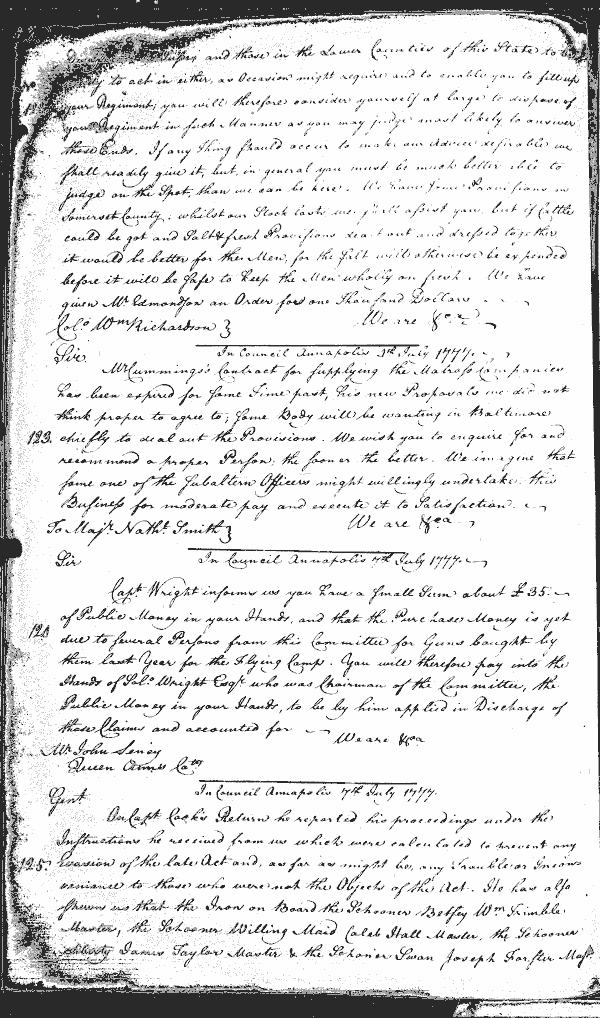 and those in the Lower Counties of this State to be
to act in either, as Occasion might require and to enable you to fill up
your Regiment; you will therefore consider yourself at large to dispose of
your Regiment in such Manner as you may judge most likely to answer
those Ends. If any thing should occur to make our Advice desirable we
shall readily give it, but, in general you must be much better able to
judge on the Spot, than we can be here. We have some Provisions in
Somerset County; whilst our Stock lasts we. assist you, but if Cattle
could be got and Salt & fresh Provisions dealt out and dressed together
it would be better for the Men, for the Salt will otherwise be expended
before it will be safe to keep the Men wholly on fresh. We have
given Mr Edmondson an Order for one thousand Dollars
We are &ca
Colo Wm Richardson }
In Council Annapolis July 1777.
Sir
Mr Cummings's Contract for supplying the Matross Companies
has been expired for some Time past, his new Proposals we did not
think proper to agree to; some Body will be wanting in Baltimore
123. chiefly to deal out the Provisions. We wish you to enquire for and
recommend a proper Person; the sooner the better. We imagine that
some one of the Subaltern Officers might willingly undertake this
Business for moderate pay and execute it to Satisfaction.
To Majr. Nathl. Smith } We are &ca
Sir In Council Annapolis 7th July 1777.
Capt Wright informs us you have a small Sum about £ 35
of Public Money in your Hands, and that the Purchase Money is yet
124 due to several Persons from this Committee for Guns bought by
them last Year for the Flying Camp. You will therefore pay into the
Hands of Solo Wright Esqr who was Chairman of the Committee, the
Public Money in your Hands, to be by him applied in Discharge of
those Claims and accounted for
We are &ca
Mr John Seney
Queen Anns Coty
In Council Annapolis 7th July 1777.
Gent
On Capt Cook's Return he reported his proceedings under the
Instructions he received from us which were calculated to prevent any
125. Evasion of the late Act and, as far as might be, any Trouble or Incon
venience to those who were not the Objects of the Act. He has also
shewn us that the Iron on Board the Schooner Betsey Wm Trimble
Master, the Schooner Willing Maid Caleb Hall Master, the Schooner
Liberty James Taylor Master & the Schooner Swan Joseph Forster Mastr.